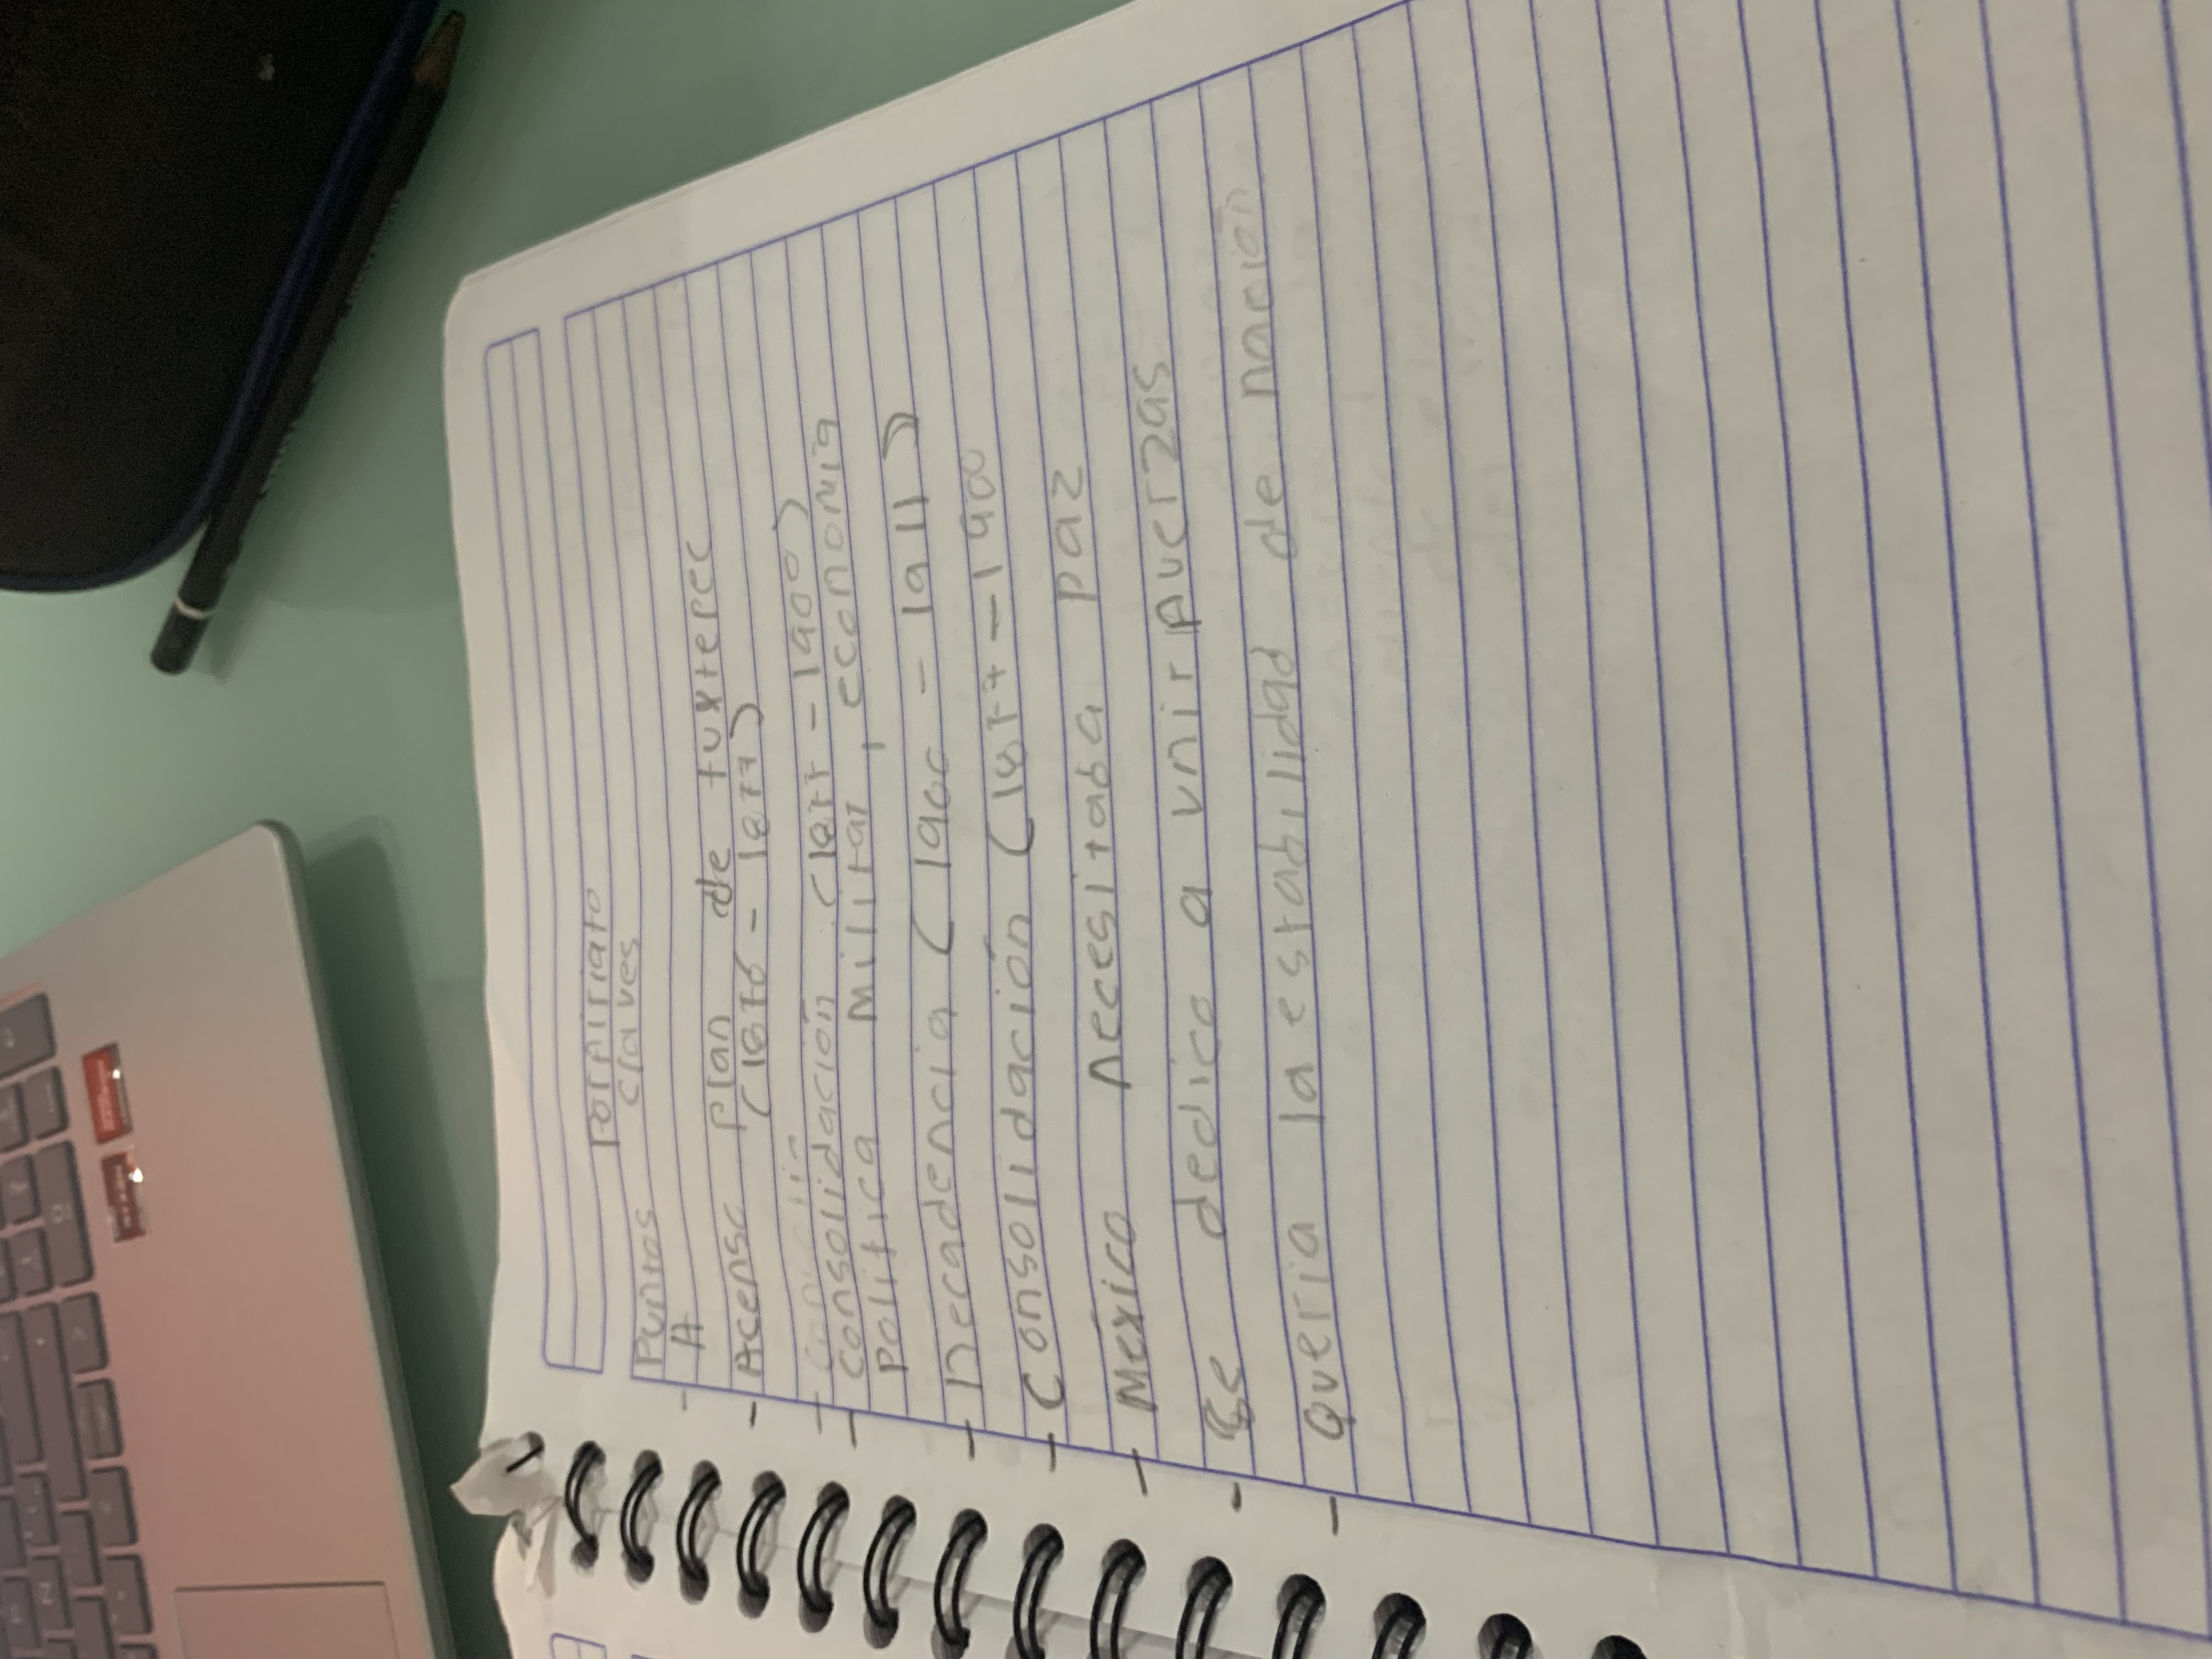 Porfiriato
Puntos claves
- A
- Acenso plan de tuxtepec
(1876 - 1877)
- Consolidación (1877 - 1900)
politica militar, economia
- Decadencia (1900 - 1911)
- Consolidación (1877 - 1900
- México necesitaba paz
- Se dedico a unir fuerzas
- Queria la estabilidad de nación